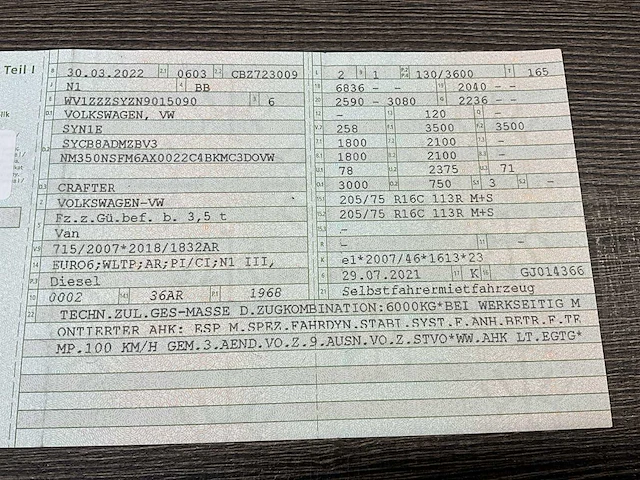 Teil I
B 30.03.2022 2.1 0603 2.2 CBZ723009
J N1 4 BB
E WV1ZZZSYZN9015090 3 6
D.1 VOLKSWAGEN, VW
SYN1E
D.2 SYCB8ADMZBV3
NM350NSFM6AX0022C4BKMC3DOVW
D.3 CRAFTER
2 VOLKSWAGEN-VW
5 Fz.z.Gü.bef. b. 3,5 t
Van
V.9 715/2007*2018/1832AR
14 EURO6;WLTP;AR;PI/CI;N1 III,
P.3 Diesel
10 0002 14.1 36AR P.1 1968
L 2 9 1 P.2 P.4 130/3600 T 165
18 6836 - - 19 2040 - -
20 2590 - 3080 G 2236 - -
12 - 13 120 Q -
V.7 258 F.1 3500 F.2 3500
7.1 1800 7.2 2100 7.3 -
8.1 1800 8.2 2100 8.3 -
U.1 78 U.2 2375 U.3 71
O.1 3000 O.2 750 S.1 3 S.2 -
15.1 205/75 R16C 113R M+S
15.2 205/75 R16C 113R M+S
15.3 -
R - 11 -
K e1*2007/46*1613*23
6 29.07.2021 17 K 16 GJ014366
21 Selbstfahrermietfahrzeug
22 TECHN.ZUL.GES-MASSE D.ZUGKOMBINATION:6000KG*BEI WERKSEITIG M
ONTIERTER AHK: ESP M.SPEZ.FAHRDYN.STABI.SYST.F.ANH.BETR.F.TE
MP.100 KM/H GEM.3.AEND.VO.Z.9.AUSN.VO.Z.STVO*WW.AHK LT.EGTG*